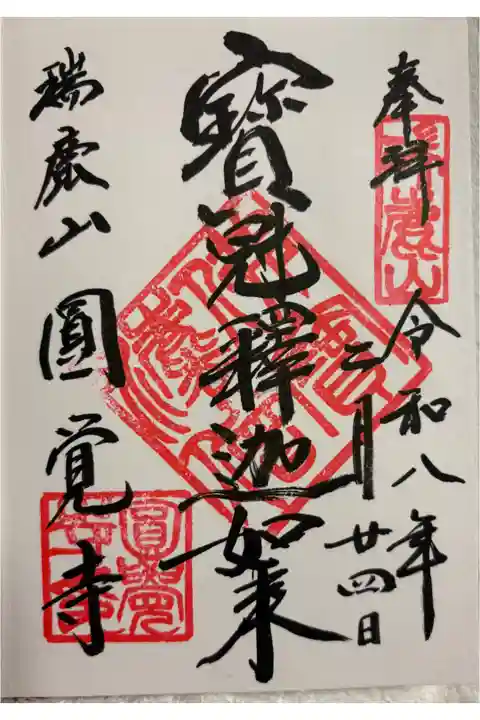 奉拝
令和八年
二月廿四日
寶冠釋迦如来
瑞鹿山圓覚寺
瑞鹿山